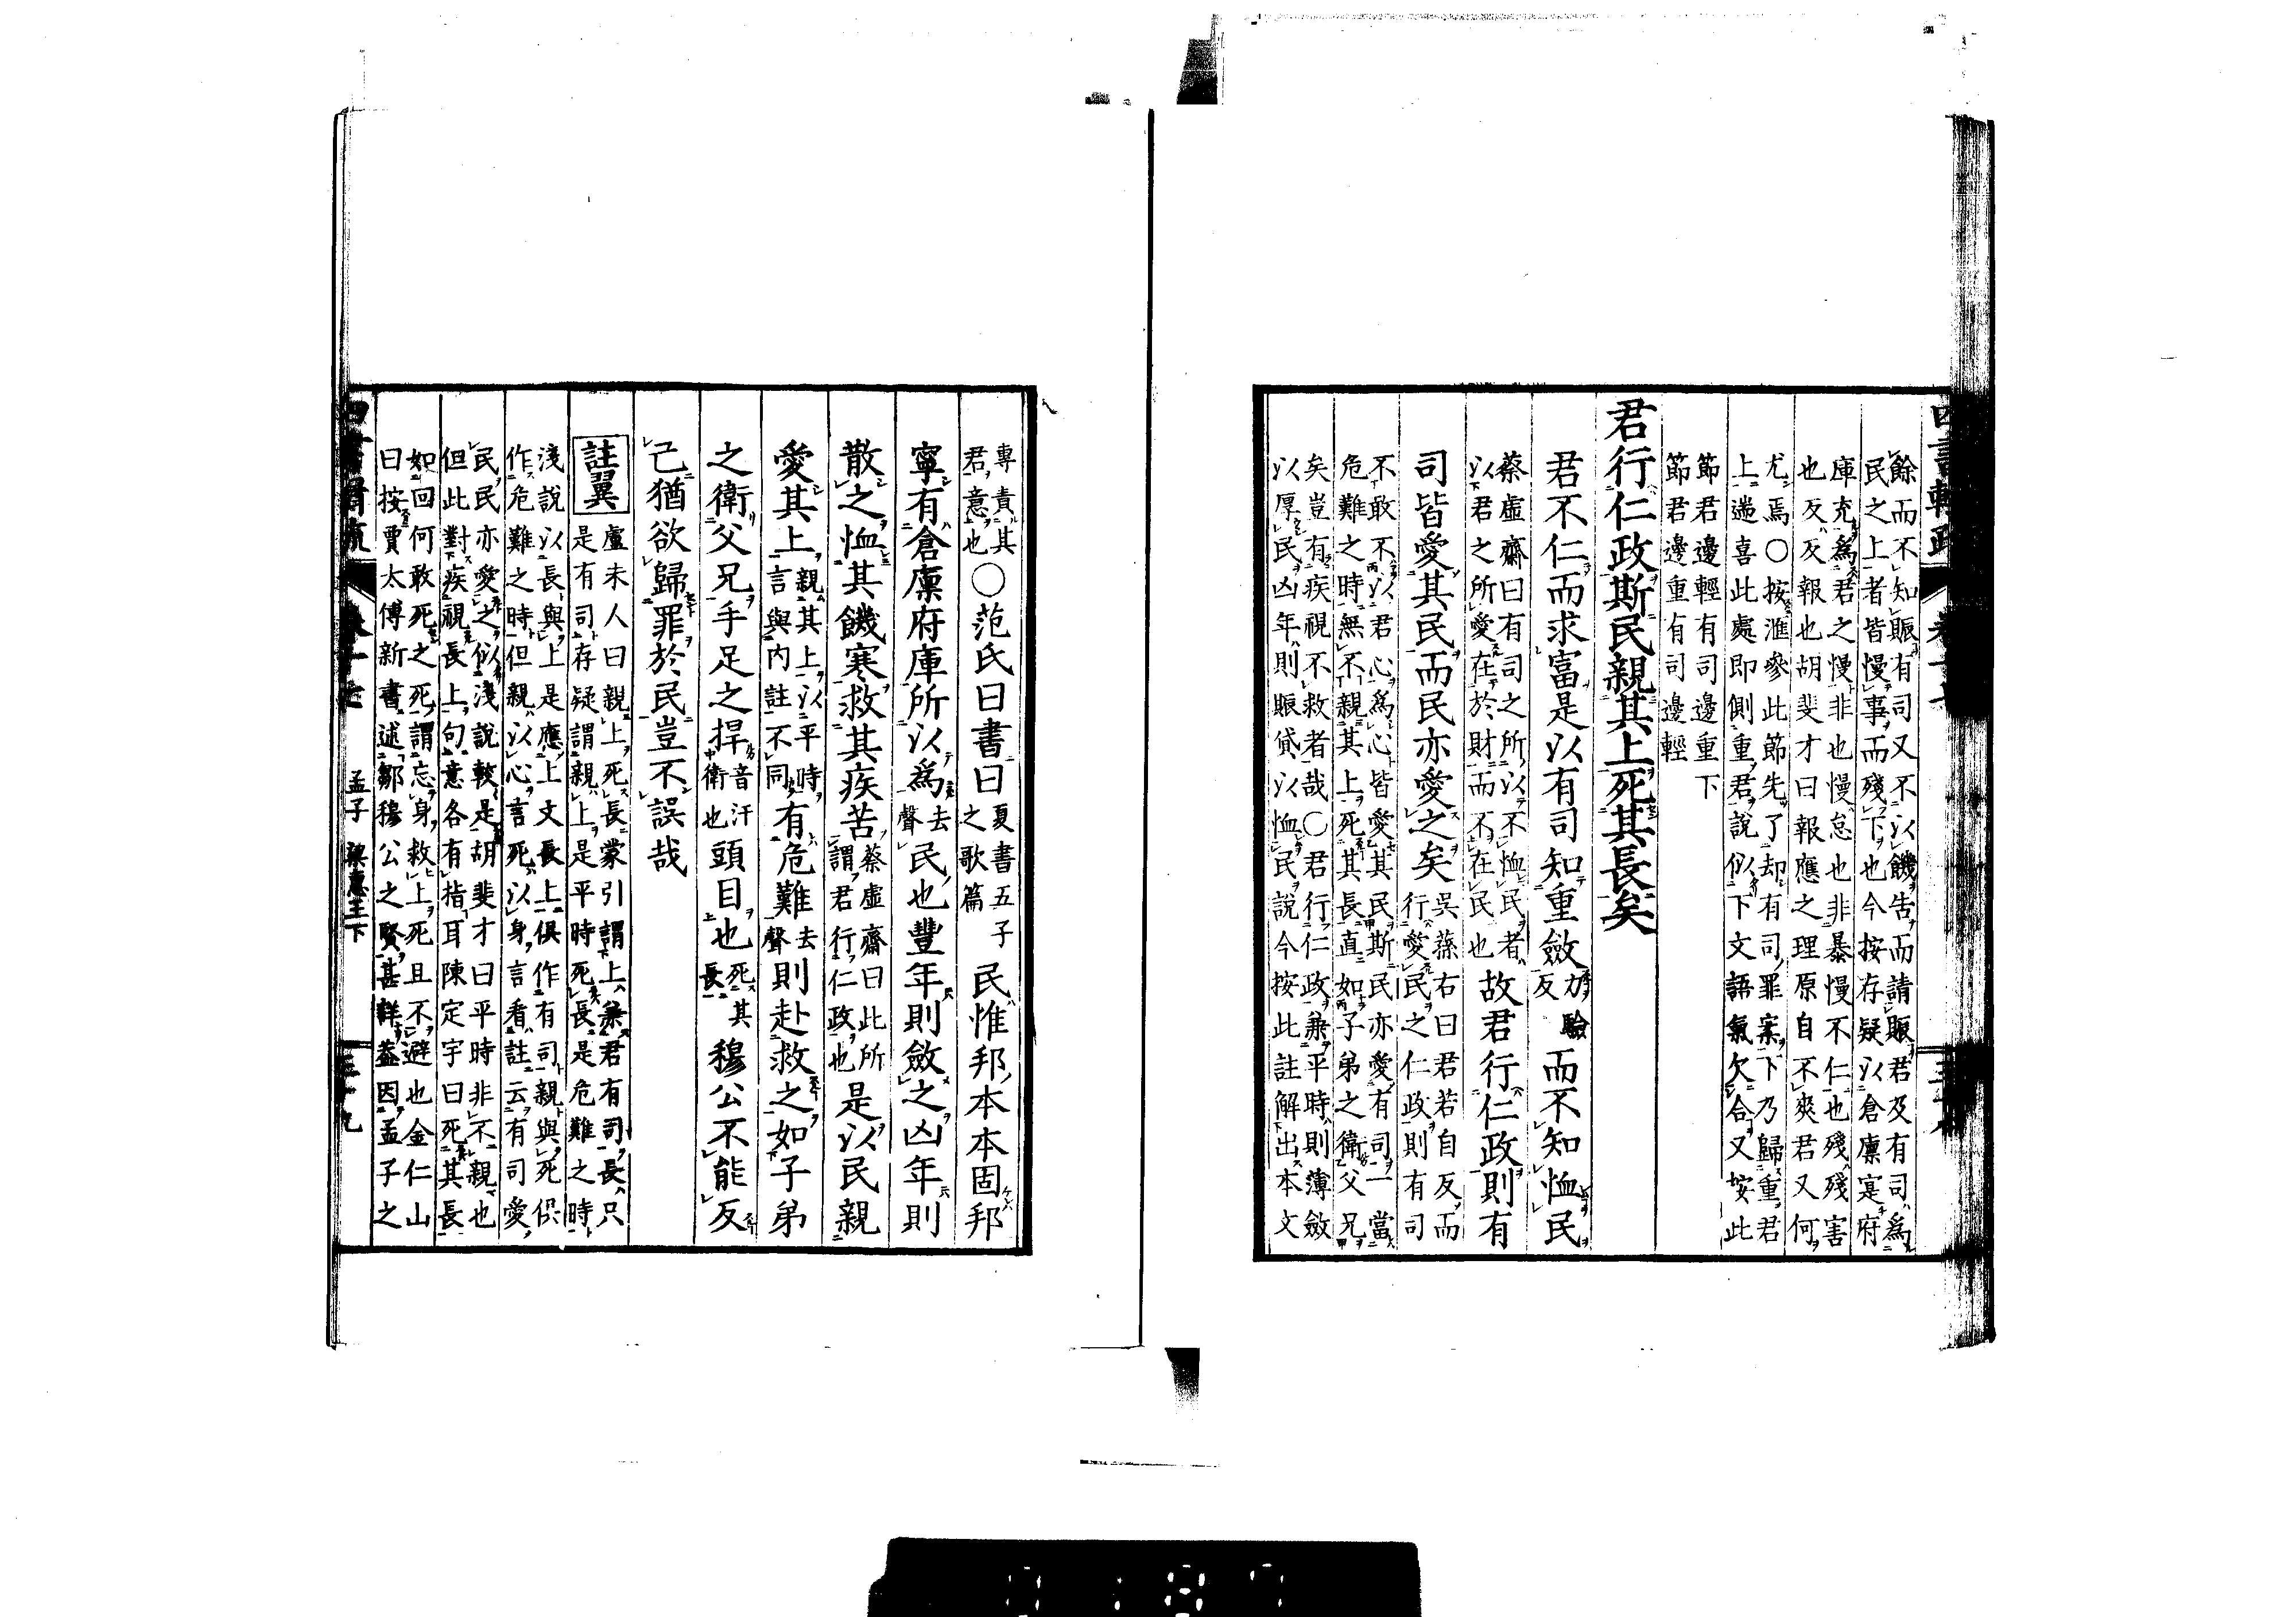 餘而不知賑有司又不以饑告而請賑君及有司為
民之上者皆慢事而殘下也今按存疑以倉廩寔府
庫充為君之慢非也慢怠也非暴慢不仁也殘殘害
也反反報也胡斐才曰報應之理原自不爽君又何
尤焉○按滙參此節先了却有司罪案下乃歸重君
上遄喜此處即側重君說似以下文語氣欠合又按此
節君邊輕有司邊重下
節君邊重有司邊輕
君行仁政斯民親其上死其長矣
君不仁而求富是以有司知重斂力驗反而不知恤民
蔡虛齋曰有司之所以不恤民者
以君之所愛在於財而不在民也
故君行仁政則有
司皆愛其民而民亦愛之矣
吳蓀右曰君若自反而
行愛民之仁政則有司
不敢不以君心為心皆愛其民斯民亦愛有司一當
危難之時無不親其上死其長直如子弟之衛父兄
矣豈有疾視不救者哉○君行仁政兼平時則薄斂
以厚民凶年則賑貸以恤民說今按此註解出本文
專責其
君意也
○范氏曰書曰
夏書五子
之歌篇
民惟邦本本固邦
寧有倉廩府庫所以為去聲民也豐年則斂之凶年則
散之恤其饑寒救其疾苦
蔡虛齋曰此所
謂君行仁政也
是以民親
愛其上
親其上以平時
言與內註不同
有危難去聲則赴救之如子弟
之衛父兄手足之捍
音汗
衛也
頭目也
死其
長
穆公不能反
己猶欲歸罪於民豈不誤哉
註翼
盧未人曰親上死長蒙引謂上兼君有司長只
是有司存疑謂親上是平時死長是危難之時
淺說以長與上是應上文長上俱作有司親與死俱
作危難之時但親以心言死以身言看註云有司愛
民民亦愛之似淺說較是胡斐才曰平時非不親也
但此對疾視長上句意各有指耳陳定宇曰死其長
如回何敢死之死謂忘身救上死且不避也金仁山
曰按賈太傅新書述鄒穆公之賢甚詳蓋因孟子之
孟子 梁惠王下